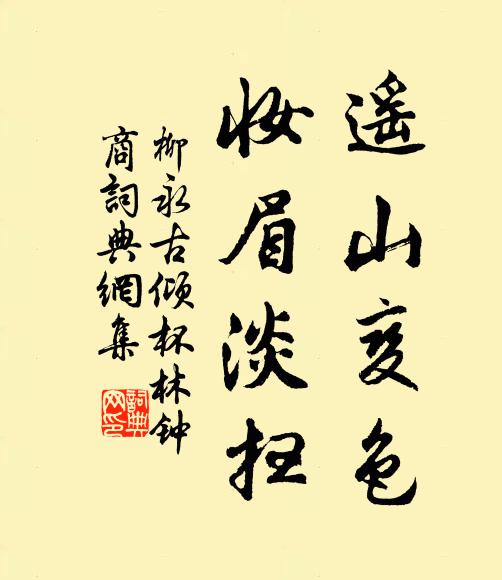 遥山变色
妆眉淡扫
柳永古倾杯林钟
商詞典網集
詞典网印